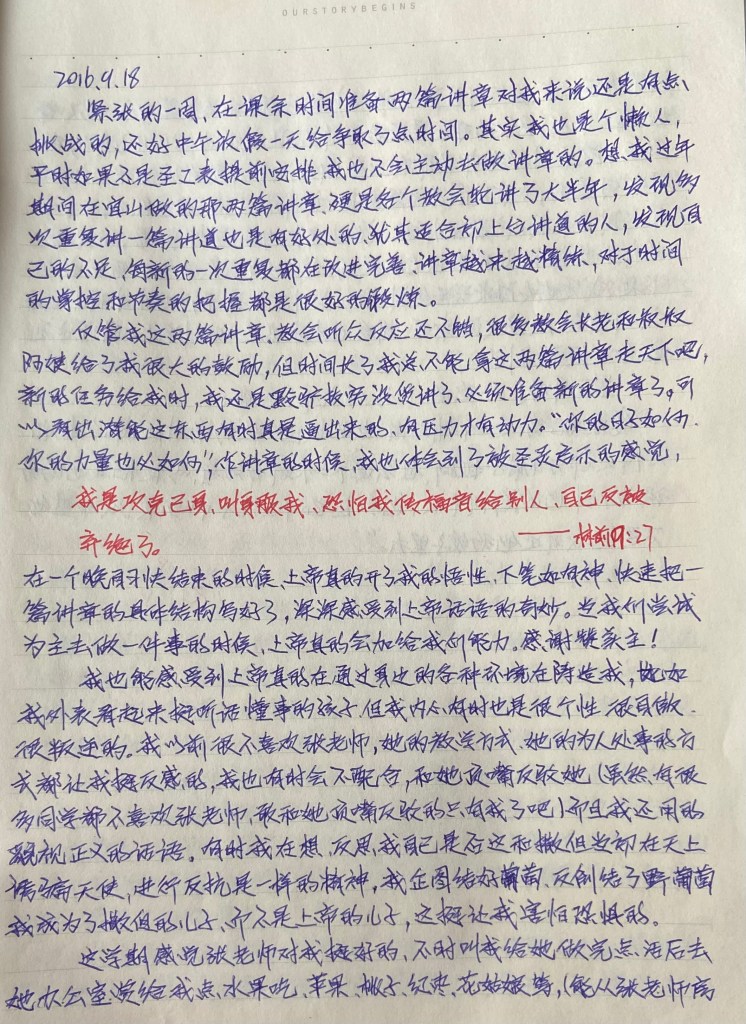 OURSTORYBEGINS
2016.9.18
紧张的一周、在课余时间准备两篇讲章对我来说还是有点、
挑战的,还好中午放假一天给争取了点时间。其实我也是个懒人,
平时如果不是至工表提前安排、我也不会主动去做讲章的。想、我过年
期间在宜山做的那两篇讲章、硬是各个教会轮讲了大半年,发现多
次重复讲一篇讲道也是有好处的、尤其适合初上台讲道的人,发现自
己的不足、每新的一次重复都在改进完善、讲章越来越精练,对于时间
的掌控和节奏的把握都是很好的锻炼。
仅管我这两篇讲章、教会听众反应还不错,很多教会长老和叔叔
阿姨给了我很大的鼓励,但时间长了我总不能拿这两篇讲章走天下吧,
新的任务给我时,我还是黔驴技穷没货讲了、必须准备新的讲章了。可
以 潜能这东西有时真是逼出来的、有压力才有动力。“你的日子如何、
你的力量也必如何”、作讲章的时候、我也体会到了被圣灵启示的感觉,
我是攻克己身、叫身服我、恐怕我传福音给别人、自己反被
弃绝了。
——林前9:27
在一个晚自习快结束的时候、上帝真的开了我的悟性、下笔如有神、快速把一
篇讲章的具体结构写好了,深深感受到上帝话语的奇妙。当我们尝试
为主去做一件事的时候、上帝真的会加给我们能力。感谢赞美主!
我也能感受到上帝真的在通过身边的各种环境在陶造我,比如
我外表看起来挺听话懂事的孩子、但我内心有时也是很个性、很自傲、
很叛逆的。我以前很不喜欢张老师,她的教学方式、她的为人处事的方
式都让我挺反感的,我也有时会不配合,和她顶嘴反驳她(虽然有很
多同学都不喜欢张老师、敢和她顶嘴反驳的只有我了吧)而且我还用的
貌视正义的话语。有时我在想、反思、我自己是否这和撒但当初在天上
诱骗天使,进行反抗是一样的精神,我企图结好葡萄、反倒结了野葡萄
我成为了撒但的儿子、而不是上帝的儿子,这挺让我害怕恐惧的。
这学期感觉张老师对我挺好的、不时叫我给她做完点活后去
她办公室 给我点、水果吃、苹果、桃子、红枣、花姑娘等,(能从张老师高